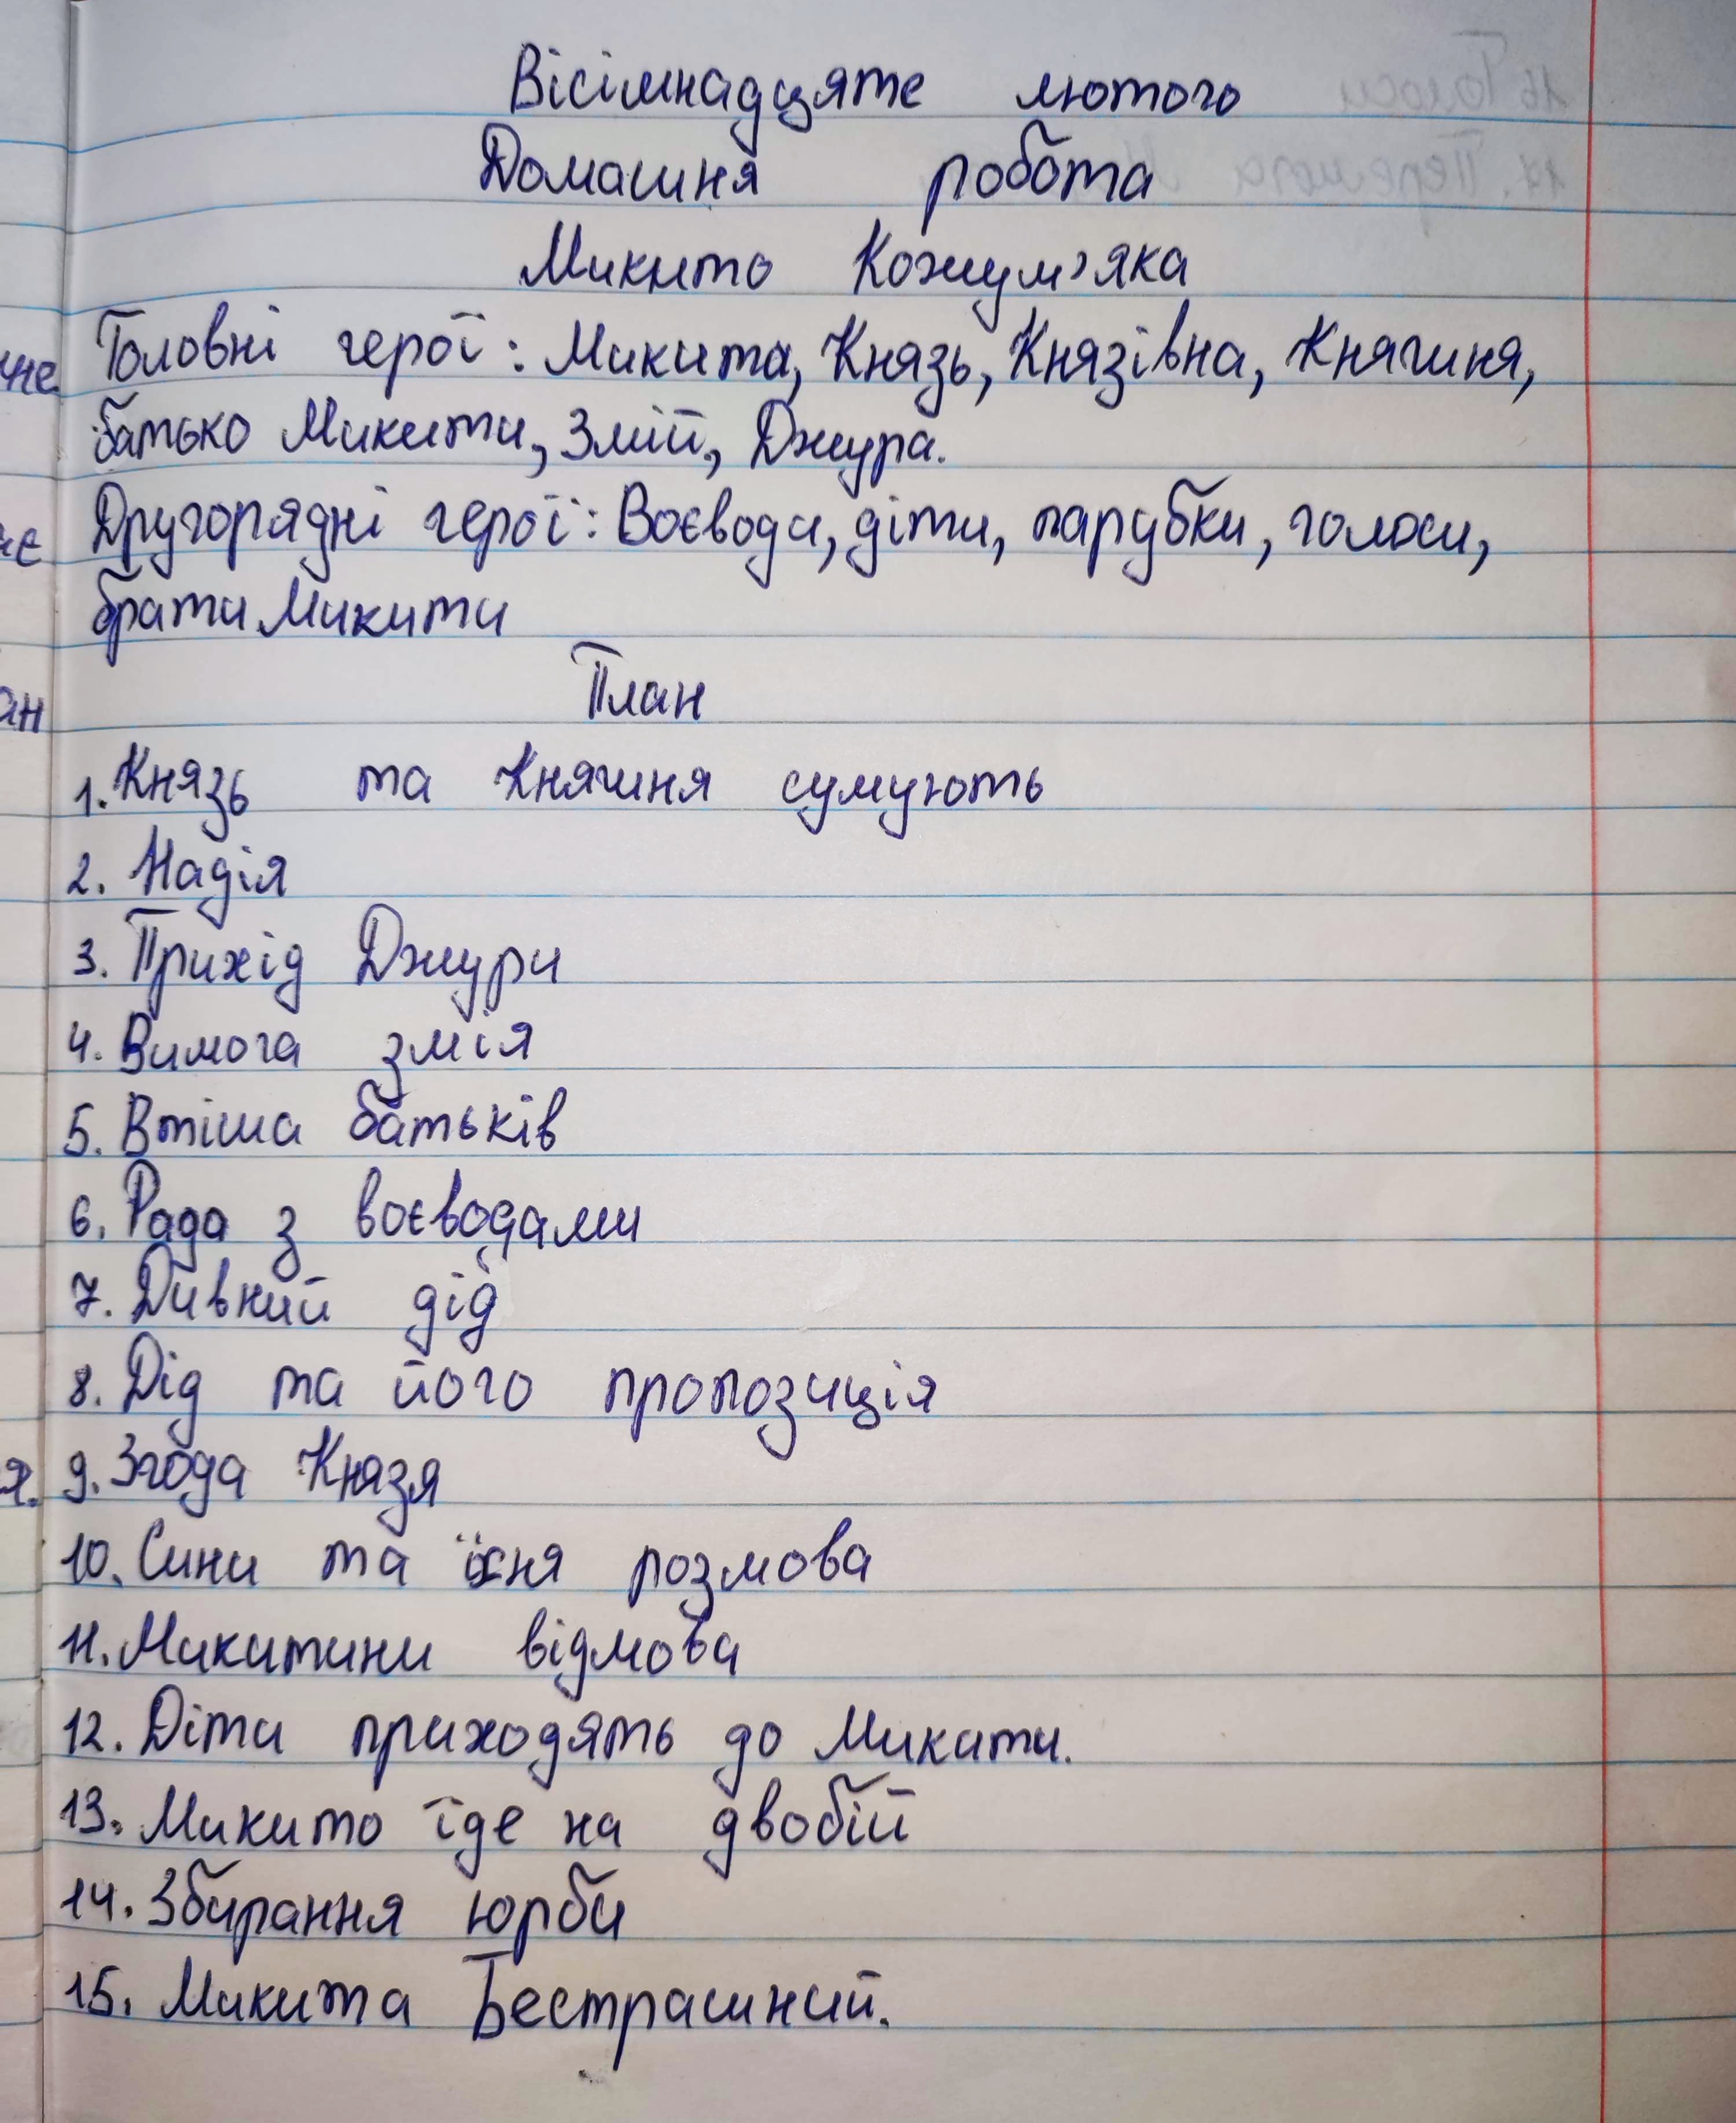 Вісімнадцяте лютого
Домашня робота
Микито Кожум'яка
Головні герої: Микита, Князь, Князівна, Княгиня,
батько Микити, Змій, Джура.
Другорядні герої: Воєвода, діти, парубки, голоси,
брати Микити
План
1. Князь та Княгиня сумують
2. Надія
3. Прихід Джури
4. Вимога змія
5. Втіша батьків
6. Рада з воєводами
7. Дивний дід
8. Дід та його пропозиція
9. Згода Князя
10. Сини та їхня розмова
11. Микитини відмова
12. Діти приходять до Микити.
13. Микито їде на двобій
14. Збирання юрби
15. Микита Бестрашний.